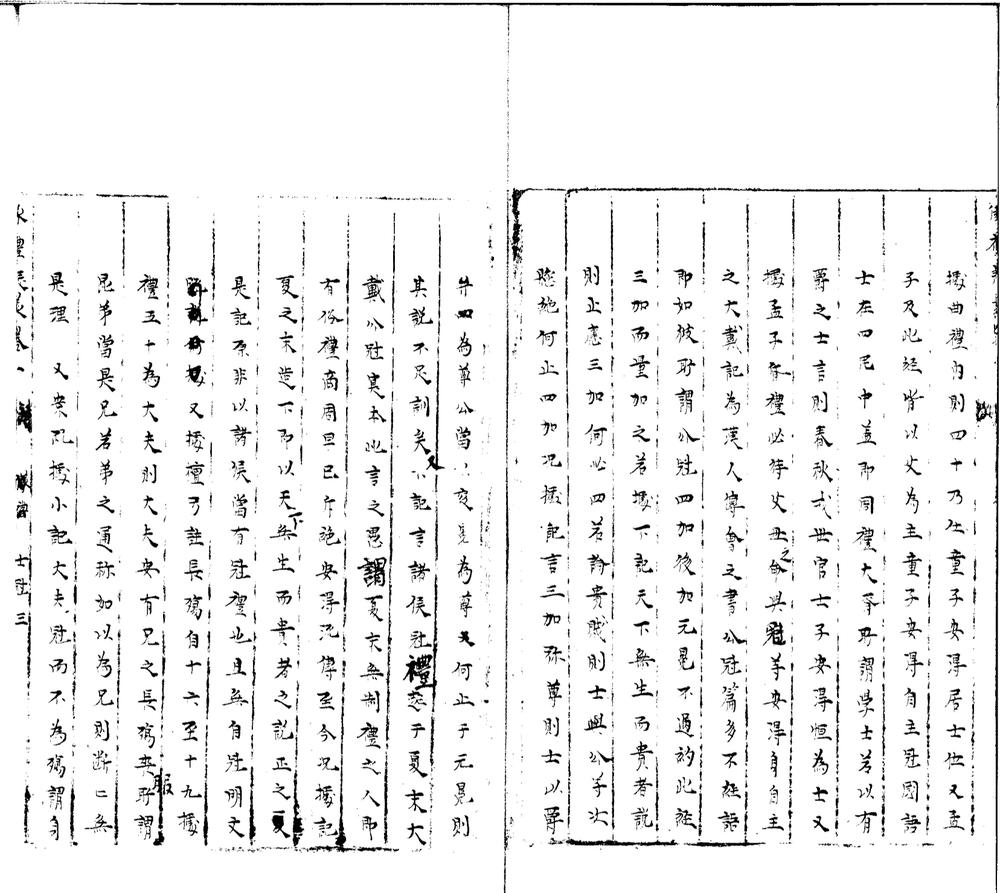 據曲禮內則四十乃仕童子安得居士位又孟
子及此經皆以父為主童子安得自主冠國語
士在四民中蓋即周禮大胥所謂學士若以有
爵之士言則春秋世官士子安得恒為士又
據孟子禮必待父母之命與冠等安得身自主
之大戴記為漢人傅會之書公冠篇多不經語
即如彼所謂公冠四加後加元冕不過約此經
三加而疊加之若據下記天下無生而貴者說
則止應三加何必四若論貴賤則士與公等
懸絕何止四加況據記言三加彌尊則士以爵
弁四為尊公當以為尊又何止于元冕則
其說不足訓矣又下記言諸侯冠禮起于夏末大
戴公冠實本此言之愚謂夏末無制禮之人即
有俗禮商周旦已斥絕安得流傳至今況據記
夏之末造下即以天下無生而貴者之說正之
是記原非以諸侯當有冠禮也且無自冠明文
又據檀弓註長殤自十六至十九據
禮五十為大夫則大夫安有兄之長殤喪服所謂
昆弟當是兄若弟之通称如以為兄則斷亡無
是理 又案既據小記大夫冠而不為殤謂身
士冠 三